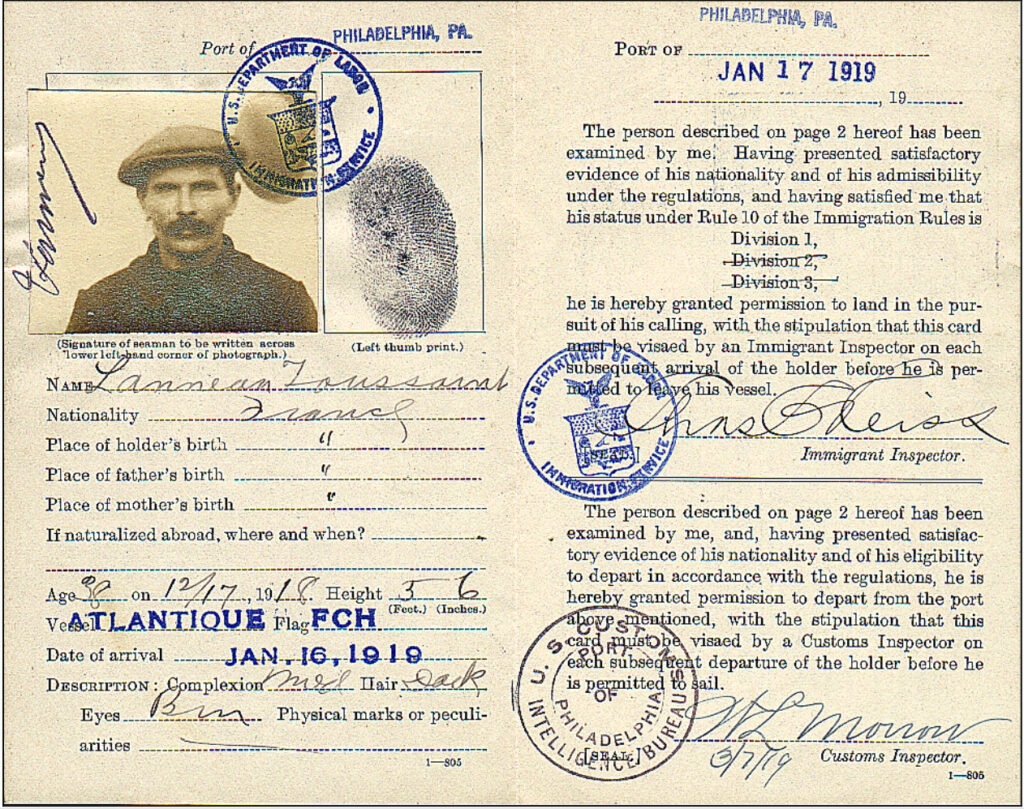 Port of PHILADELPHIA, PA.
U.S. DEPARTMENT OF LABOR
IMMIGRATION SERVICE
(Signature of seaman to be written across
lower left-hand corner of photograph.)
(Left thumb print.)
NAME Lanneau Toussaint
Nationality France
Place of holder's birth "
Place of father's birth "
Place of mother's birth "
If naturalized abroad, where and when?
Age 38 on 12/17, 1918 Height 5 6
(Feet.) (Inches.)
Vessel ATLANTIQUE Flag FCH
Date of arrival JAN. 16, 1919
DESCRIPTION: Complexion Med Hair Dark
Eyes Brn Physical marks or peculi-
arities
1—805
PHILADELPHIA, PA.
PORT OF
JAN 17 1919
, 19
The person described on page 2 hereof has been
examined by me. Having presented satisfactory
evidence of his nationality and of his admissibility
under the regulations, and having satisfied me that
his status under Rule 10 of the Immigration Rules is
Division 1,
Division 2,
Division 3,
he is hereby granted permission to land in the pur-
suit of his calling, with the stipulation that this card
must be visaed by an Immigrant Inspector on each
subsequent arrival of the holder before he is per-
mitted to leave his vessel.
U.S. DEPARTMENT OF LABOR
IMMIGRATION SERVICE
[SEAL.]
Immigrant Inspector.
The person described on page 2 hereof has been
examined by me, and, having presented satisfac-
tory evidence of his nationality and of his eligibility
to depart in accordance with the regulations, he is
hereby granted permission to depart from the port
above mentioned, with the stipulation that this
card must be visaed by a Customs Inspector on
each subsequent departure of the holder before he
is permitted to sail.
U. S. CUSTOMS
INTELLIGENCE BUREAU
PORT
OF
PHILADELPHIA
[SEAL.]
W L Morrow
3/7/19 Customs Inspector.
1—805